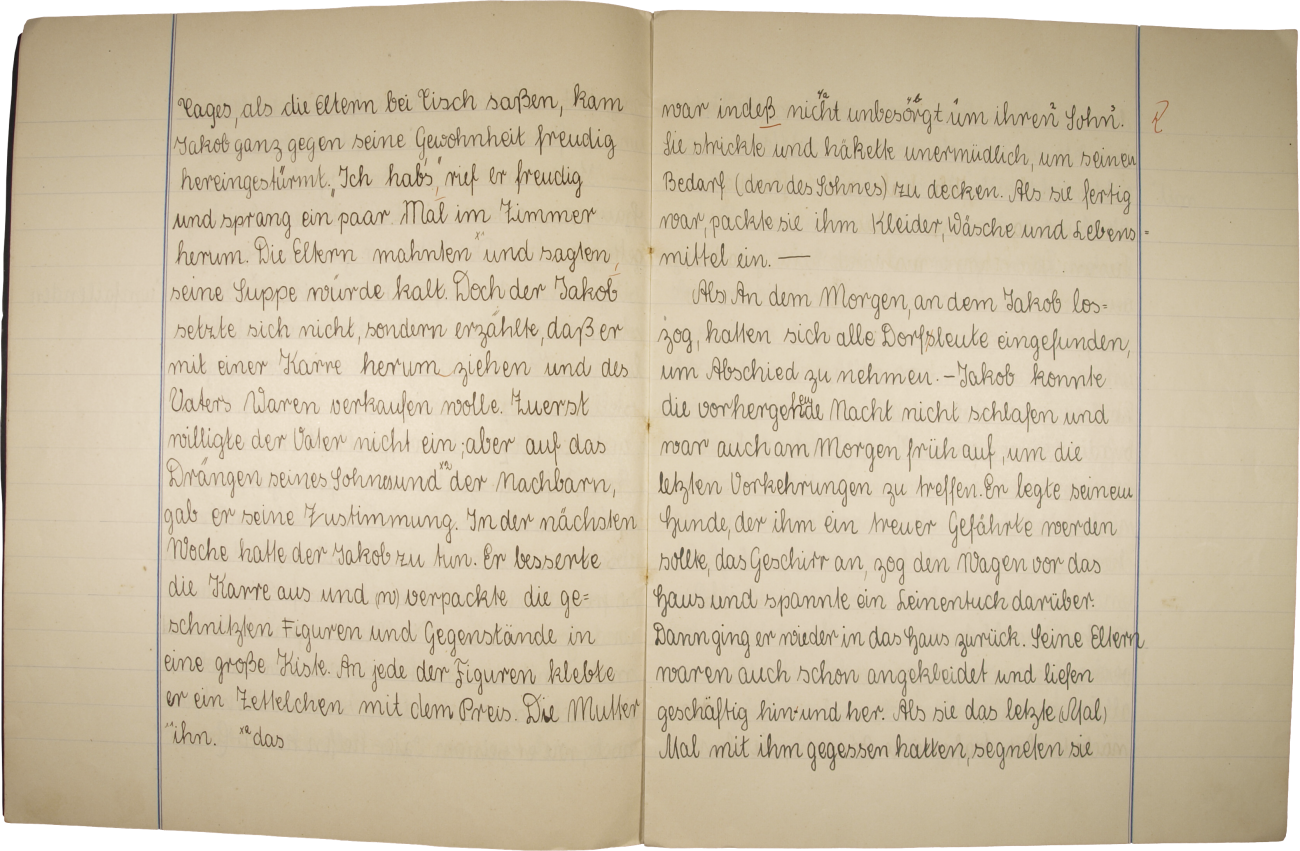 Tages, als die Eltern bei Tisch saßen, kam
Jakob ganz gegen seine Gewohnheit freudig
hereingestürmt. „Ich habs“, rief er freudig
und sprang ein paar Mal im Zimmer
herum. Die Eltern mahnten x¹ und sagten,
seine Suppe würde kalt. Doch der Jakob
setzte sich nicht, sondern erzählte, daß er
mit einer Karre herum ziehen und des
Vaters Waren verkaufen wolle. Zuerst
willigte der Vater nicht ein; aber auf das
Drängen seines Sohnes und x² der Nachbarn,
gab er seine Zustimmung. In der nächsten
Woche hatte der Jakob zu tun. Er besserte
die Karre aus und (w) verpackte die ge=
schnitzten Figuren und Gegenstände in
eine große Kiste. An jede der Figuren klebte
er ein Zettelchen mit dem Preis. Die Mutter
x¹ ihn. x² das
war indeß nicht unbesorgt um ihren Sohn.
Sie strickte und häkelte unermüdlich, um seinen
Bedarf (den des Sohnes) zu decken. Als sie fertig
war, packte sie ihm Kleider, Wäsche und Lebens=
mittel ein. —
(Als) An dem Morgen, an dem Jakob los=
zog, hatten sich alle Dorfsleute eingefunden,
um Abschied zu nehmen. – Jakob konnte
die vorhergehende Nacht nicht schlafen und
war auch am Morgen früh auf, um die
letzten Vorkehrungen zu treffen. Er legte seinem
Hunde, der ihm ein treuer Gefährte werden
sollte, das Geschirr an, zog den Wagen vor das
Haus und spannte ein Leinentuch darüber.
Dann ging er wieder in das Haus zurück. Seine Eltern
waren auch schon angekleidet und liefen
geschäftig hin und her. Als sie das letzte (Mal)
Mal mit ihm gegessen hatten, segneten sie